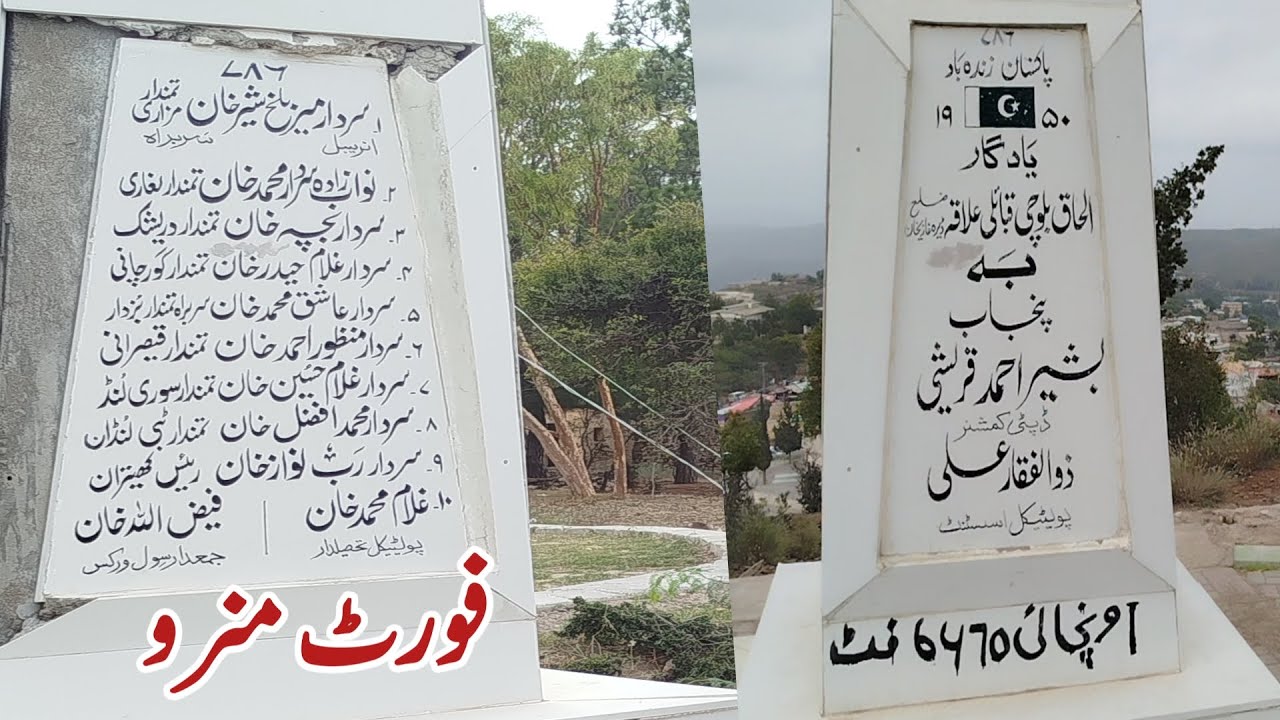 ۷۸۶
۱ سردار میر بلخ شیر خان تمندار مزاری
انریبل سربراہ
۲۔ نواب زادہ سردار محمد خان تمندار لغاری
۳۔ سردار نجچہ خان تمندار دریشک
۴۔ سردار غلام حیدر خان تمندار گورچانی
۵۔ سردار عاشق محمد خان سربراہ تمندار بزدار
۶۔ سردار منظور احمد خان تمندار قیصرانی
۷۔ سردار غلام حسین خان تمندار سوری لنڈ
۸۔ سردار محمد افضل خان تمندار ٹبی لنڈان
۹۔ سردار رب نواز خان رئیس کھیتران
۱۰۔ غلام محمد خان | فیض اللہ خان
پولٹیکل تحصیلدار | جمعدار سول ورکس
فورٹ منرو
۷۸۶
پاکستان زندہ باد
۱۹ ۵۰
یادگار
الحاق بلوچی قبائلی علاقہ ضلع ڈیرہ غازیخان
بہ
پنجاب
بشیر احمد قریشی
ڈپٹی کمشنر
ذوالفقار علی
پولیٹیکل اسسٹنٹ
اونچائی 6470 فٹ